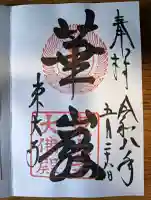 奉拝
令和八年
五月二十日
華嚴
東大寺